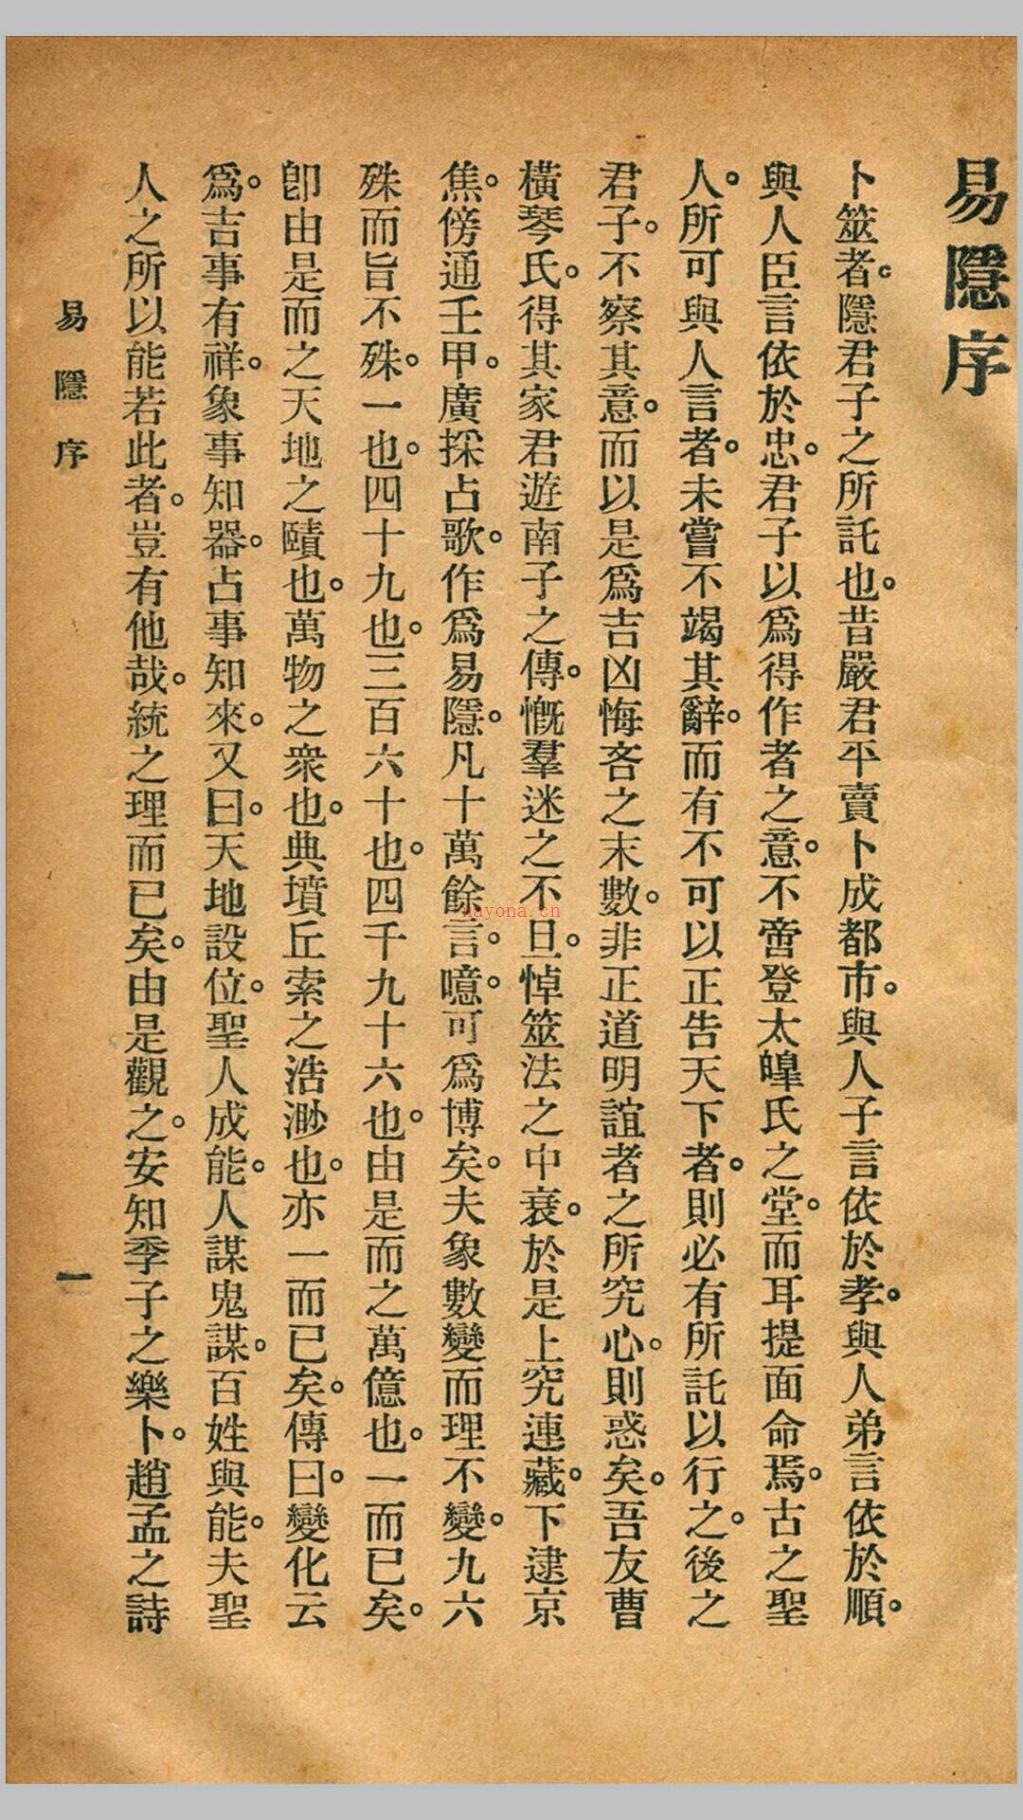 易隱序
卜筮者。隱君子之所託也。昔嚴君平賣卜成都市。與人子言依於孝。與人弟言依於順。
與人臣言依於忠。君子以爲得作者之意。不啻登太皥氏之堂。而耳提面命焉。古之聖
人。所可與人言者。未嘗不竭其辭。而有不可以正告天下者。則必有所託以行之。後之
君子。不察其意。而以是爲吉凶悔吝之末數。非正道明誼者之所究心。則惑矣。吾友曹
橫琴氏。得其家君遊南子之傳。慨羣迷之不旦。悼筮法之中衰。於是上究連藏。下逮京
焦。傍通壬甲。廣採占歌。作爲易隱。凡十萬餘言。噫。可爲博矣。夫象數變而理不變。九六
殊而旨不殊。一也。四十九也。三百六十也。四千九十六也。由是而之萬億也。一而已矣。
卽由是而之天地之賾也。萬物之衆也。典墳丘索之浩渺也。亦一而已矣。傳曰。變化云
爲。吉事有祥。象事知器。占事知來。又曰。天地設位。聖人成能。人謀鬼謀。百姓與能。夫聖
人之所以能若此者。豈有他哉。統之理而已矣。由是觀之。安知季子之樂卜。趙孟之詩
易隱序
一
nayona.cn